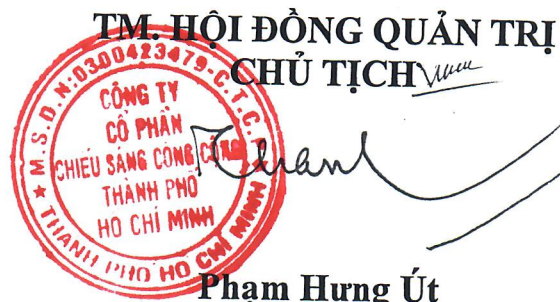 TM. HỘI ĐỒNG QUẢN TRỊ
CHỦ TỊCH
M.S.D.N:0300423479-C.T.C.P
CÔNG TY
CỔ PHẦN
CHIẾU SÁNG CÔNG CỘNG
THÀNH PHỐ
HỒ CHÍ MINH
THÀNH PHỐ HỒ CHÍ MINH
Phạm Hưng Út